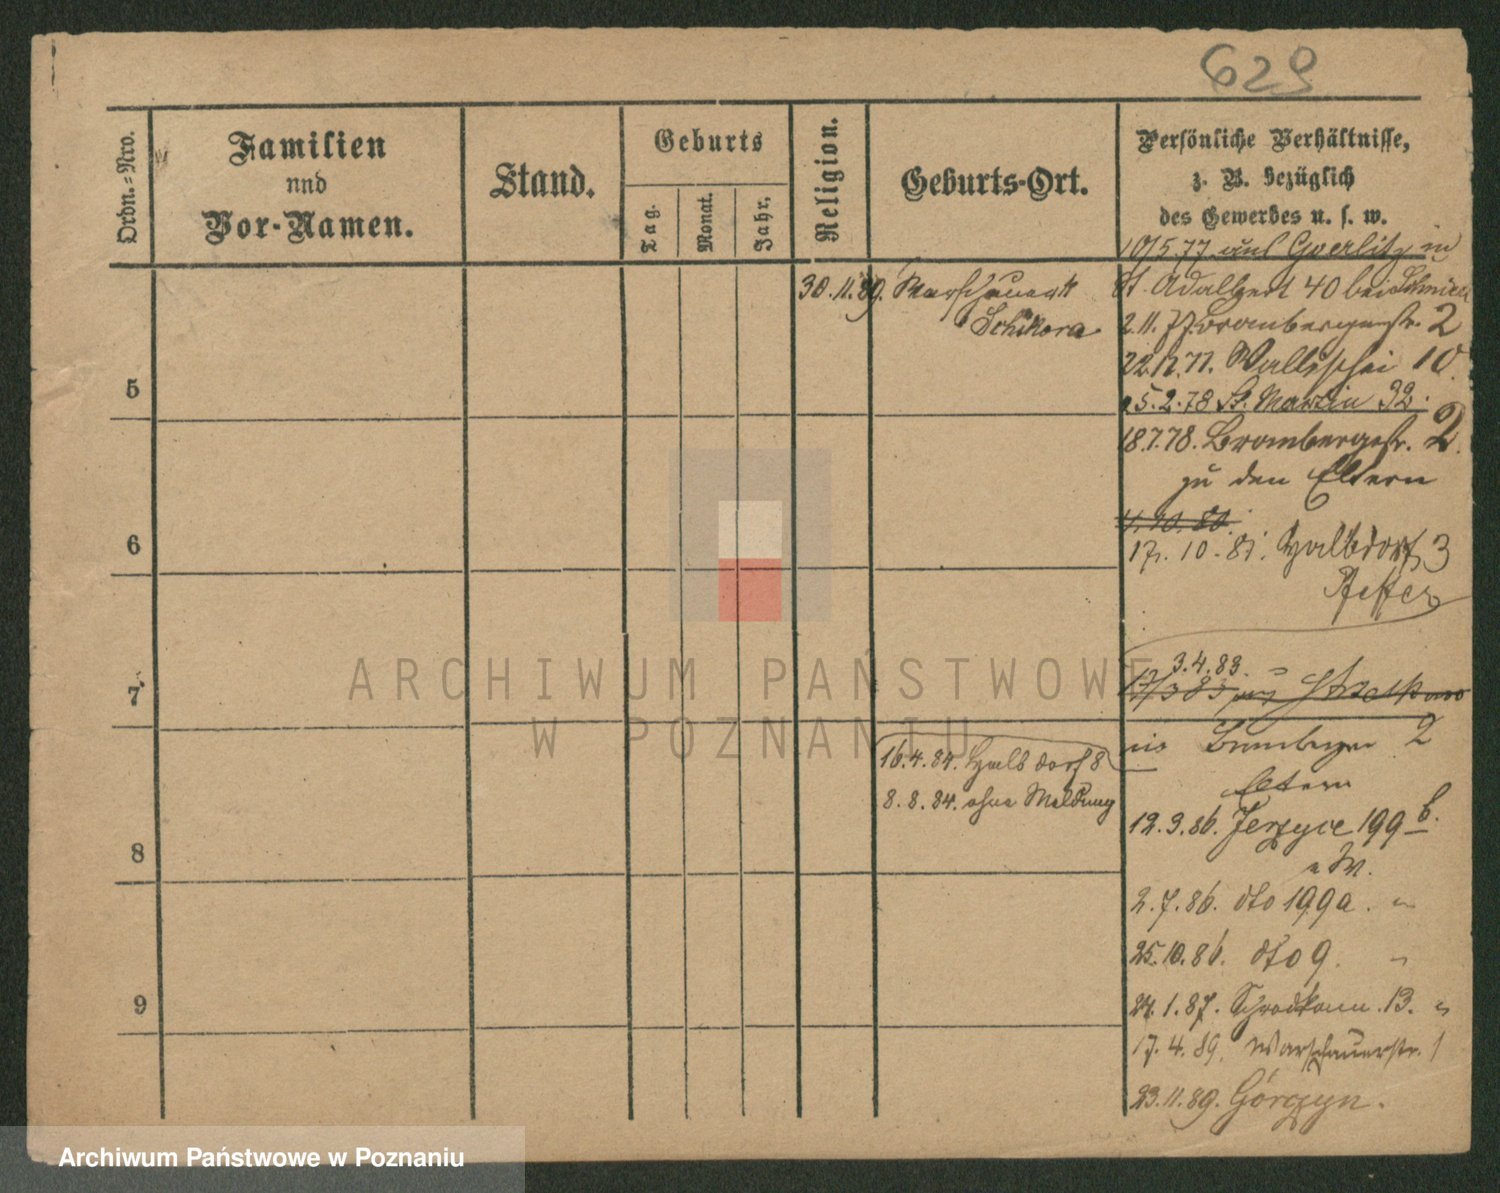 629
Ordn.-Nro.
Familien
nnd
Vor-Namen.
Stand.
Geburts
Tag.
Monat.
Jahr.
Religion.
Geburts-Ort.
Persönliche Verhältnisse,
z. B. bezüglich
des Gewerbes u. s. w.
10/5 77 aus Goerlitz in
St. Adalbert 40 bei
2.11.77. Brombergerstr. 2
22.12.77. Wallischei 10
5.2.78 St. Martin 32.
18.7.78. Brombergestr. 2.
zu den Eltern
4.10.80.
17. 10. 81. Halbdorf 3
3.4.83.
Bromberger 2
Eltern
12.3.86. Jerzyce 199 b.
2.7.86. dto 199a.
25.10.86. dto 9.
24.1.87. Schrodkam. 13.
17.4.89. Warschauerstr. 1
23.11.89. Górczyn.
30.11.89. Warschauerstr
Schikora
16.4.84. Halbdorf 8
8.8.84. ohne Meldung
5
6
7
8
9
ARCHIWUM PAŃSTWOWE
W POZNANIU
Archiwum Państwowe w Poznaniu